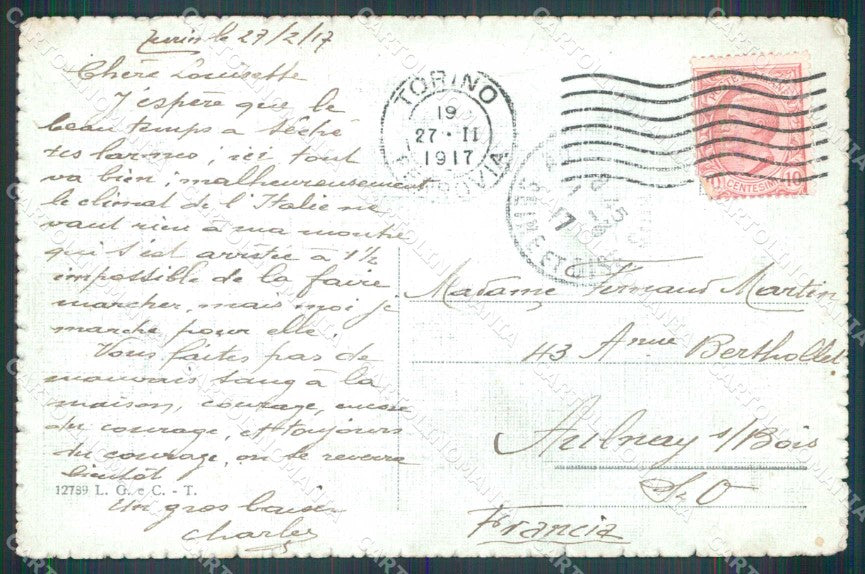 Turin le 27/2/17
Chère Louisette
J'espère que le
beau temps a séché
tes larmes, ici tout
va bien, malheureusement
le climat de l'Italie ne
vaut rien à ma montre
qui s'est arrêtée à 1 1/2
impossible de la faire
marcher, mais moi je
marche pour elle.
Vous faites pas de
mauvais sang à la
maison, courage, encore
du courage, et toujours
du courage, on se reverra
bientôt
12789 L. G. e C. - T.
Un gros baiser
Charles
TORINO
19
27 · II
1917
FERROVIA
17
SEINE ET OISE
CENTESIMI 10
Madame Fernand Martin
43 Anue Berthollet
Aulnay s/Bois
S&O
Francia
CARTOLINOMANIA